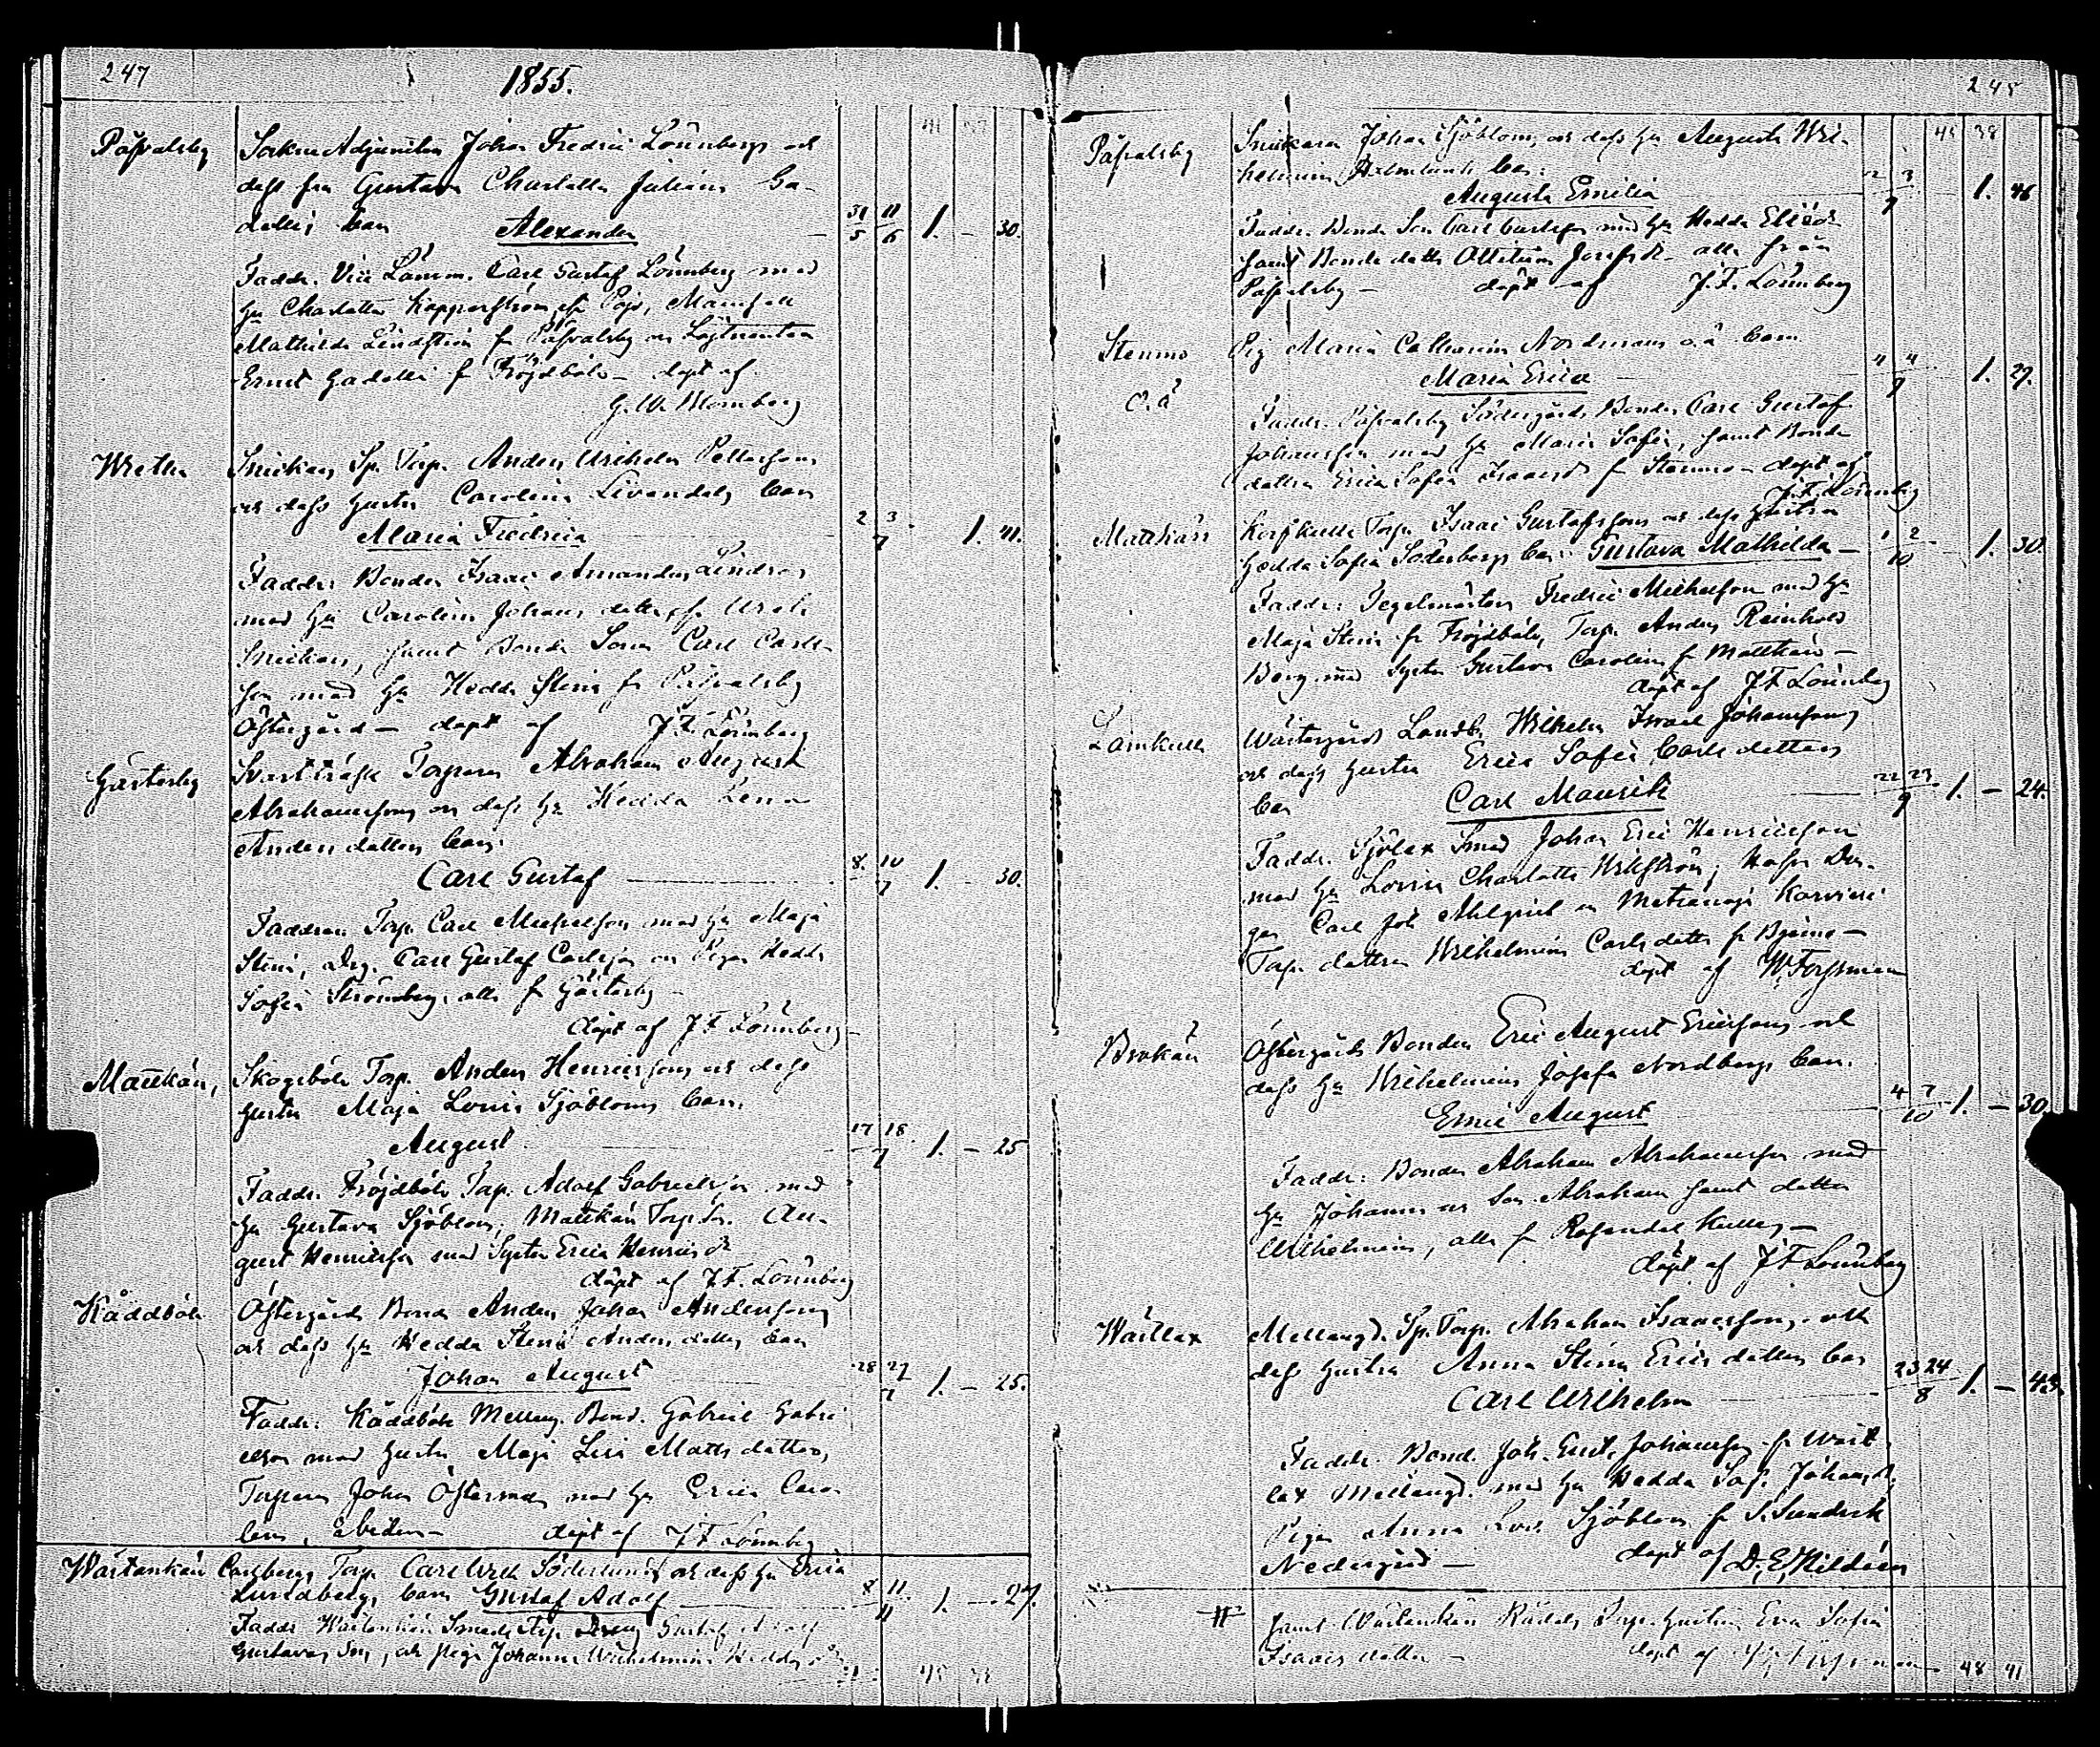 247
1855.
Påfvalsby
Sockne Adjuncten Johan Fredric Lönnbergs och
dess fru Gustava Charlotta Juliana Ga-
dellis barn Alexander 31/5 11/6 1. – 30.
Faddr. Vice Länsm. Carl Gustaf Lönnberg med
Hu Charlotta Kopparström fr Pojo, Mamsell
Mathilda Lindstein fr Påfvalsby och Löjtnanten
Ernst Gadelli fr Fröjdböle – döpt af
G. W. Blomberg
Wreta
Snickars Sp. Torp. Anders Wilhelm Petterssons
och dess hustru Carolina Levendels barn
Maria Fredrica 2 3/7 1. 41.
Faddr: Bonden Isaac Amandus Lindros
med Hu Carolina Johans dotter, fr Wreta
Snickars, samt Bonde Sonen Carl Carls-
son med Hu Hedda Stina fr Påfvalsby
Östergård – döpt af J. F. Lönnberg
Gästerby
Svartträsk Torparen Abraham August
Abrahamssons och dess Hu Hedda Lena
Anders dotters barn.
Carl Gustaf 8. 10/7 1. – 30.
Faddrar Torp. Carl Michelsson med Hu Maja
Stina, Drg. Carl Gustaf Carlsson och Pigan Hedda
Sofia Strömberg, alla fr Gästerby –
döpt af J F Lönnberg
Mattkärr,
Skogsböle Torp. Anders Henricssons och dess
hustru Maja Lovisa Sjöbloms barn.
August 17 18/7 1. – 25
Faddr. Fröjdböle Torp. Adolf Gabrielsson med
Hu Gustava Sjöblom, Mattkärr Torp. Son. Au-
gust Henricsson med Syster Erica Henricsdr
döpt af J. F. Lönnberg
Kåddböle
Östergårds Bond Anders Johan Anderssons
och dess Hu Hedda Stina Anders dotters barn
Johan August 28 29/7 1. – 25.
Faddr: Kåddböle Mellang. Bond. Gabriel Gabri
elsson med hustru Maja Lisa Matts dotter,
Torparen Johan Österman med Hu Erica Caro
lina, ibidem – döpt af J F Lönnberg
Wästankärr
Carlbergs Torp. Carl Wilh Söderlunds och dess Hu Erica
Lundbergs barn Gustaf Adolf 8 11/11 1. – 27.
Faddr Wästankärr Smeds Torp. Dräng Gustaf Adolf
Gustavs Son, och pigan Johanna Wilhelmina
245
Påfvalsby
Snickaren Johan Sjöbloms och dess Hu Augusta Wil-
helmina barn:
Augusta Emilia 2 3/9 1. 46
Faddr. Bonde Son Carl Carlsson med Hu Hedda
samt Bonde dottr Ottiliana Josefsdr – alla från
Påfvalsby – döpt af J. F. Lönnberg
Stenmo
Pig Maria Catharina Nordmans o.ä barn
Maria Erica 4/9 1. 29.
o.ä
Faddr. Påfvalsby Södergårds Bonden Carl Gustaf
Johansson med Hu Maria Sofia, samt Bonde
dottren Erica Sofia Isaacsdr fr Stenmo – döpt af
J. F. Lönnberg
Mattkärr
Korskulla Torp. Isaac Gustafssons och dess hustru
Hedda Sofia Söderbergs barn: Gustava Mathilda – 1 2/10 1. 30
Faddr: Tegelmästar Fredric Michelsson med Hu
Maja Stina fr Fröjdböle, Torp. Anders Reinhold
Berg med Syster Gustava Carolina fr Mattkärr –
döpt af J F Lönnberg
Lamkulla
Wästergårds Landb. Wilhelm Israel Johanssons
och dess hustru Erica Sofia Carls dotters
barn Carl Maurits 22 23/9 1. – 24.
Faddr. Sjölax Smed Johan Eric Henricsson
med Hu Lovisa Charlotta Wikström, Drän-
gen Carl Joh Ahlqvist
Torp. dottren Wilhelmina Carls dotter fr Bjerno –
döpt af W. Forssman
Brokärr
Östergårds Bonden Eric August Ericssons och
dess Hu Wilhelmina Josefa Nordbergs barn.
Eric August 4 7/10 1. – 30
Faddr: Bonden Abraham Abrahamsson med
Hu Johanna och Son Abraham samt dotter
Wilhelmina, alla fr Rosendal Kulla, –
döpt af J F Lönnberg
Wästlax
Mellang. Sp. Torp. Abraham Isaacssons och
dess hustru Anna Stina Erics dotters barn
Carl Wilhelm 23 24/8 1. – 43.
Faddr. Bond. Joh. Gust. Johansson fr Wäst
lax Mellang. med Hu Hedda Sof. Johansdr.
Pigan Anna Lovs. Sjöblom fr S. Sundvik
Nedergård – döpt af D. E. Hildeen
samt Wästankärr Torp. hustrun Eva Sofia
Isaacs dotter – döpt af
48 41